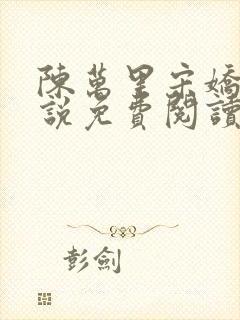 陳萬里宋嬌
說免費閱讀
彭劍